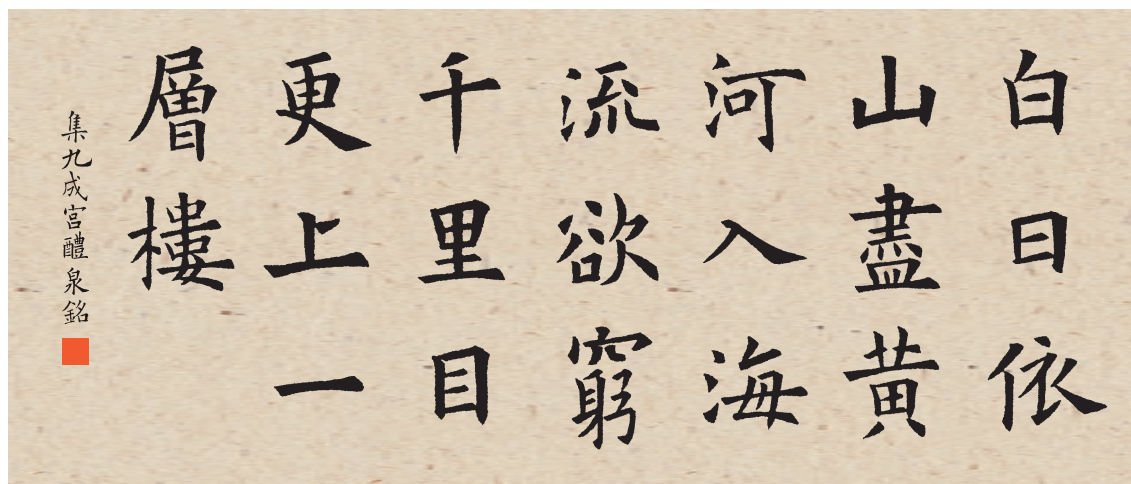 白日依
山盡黃
河入海
流欲窮
千里目
更上一
層樓
集九成宮醴泉銘